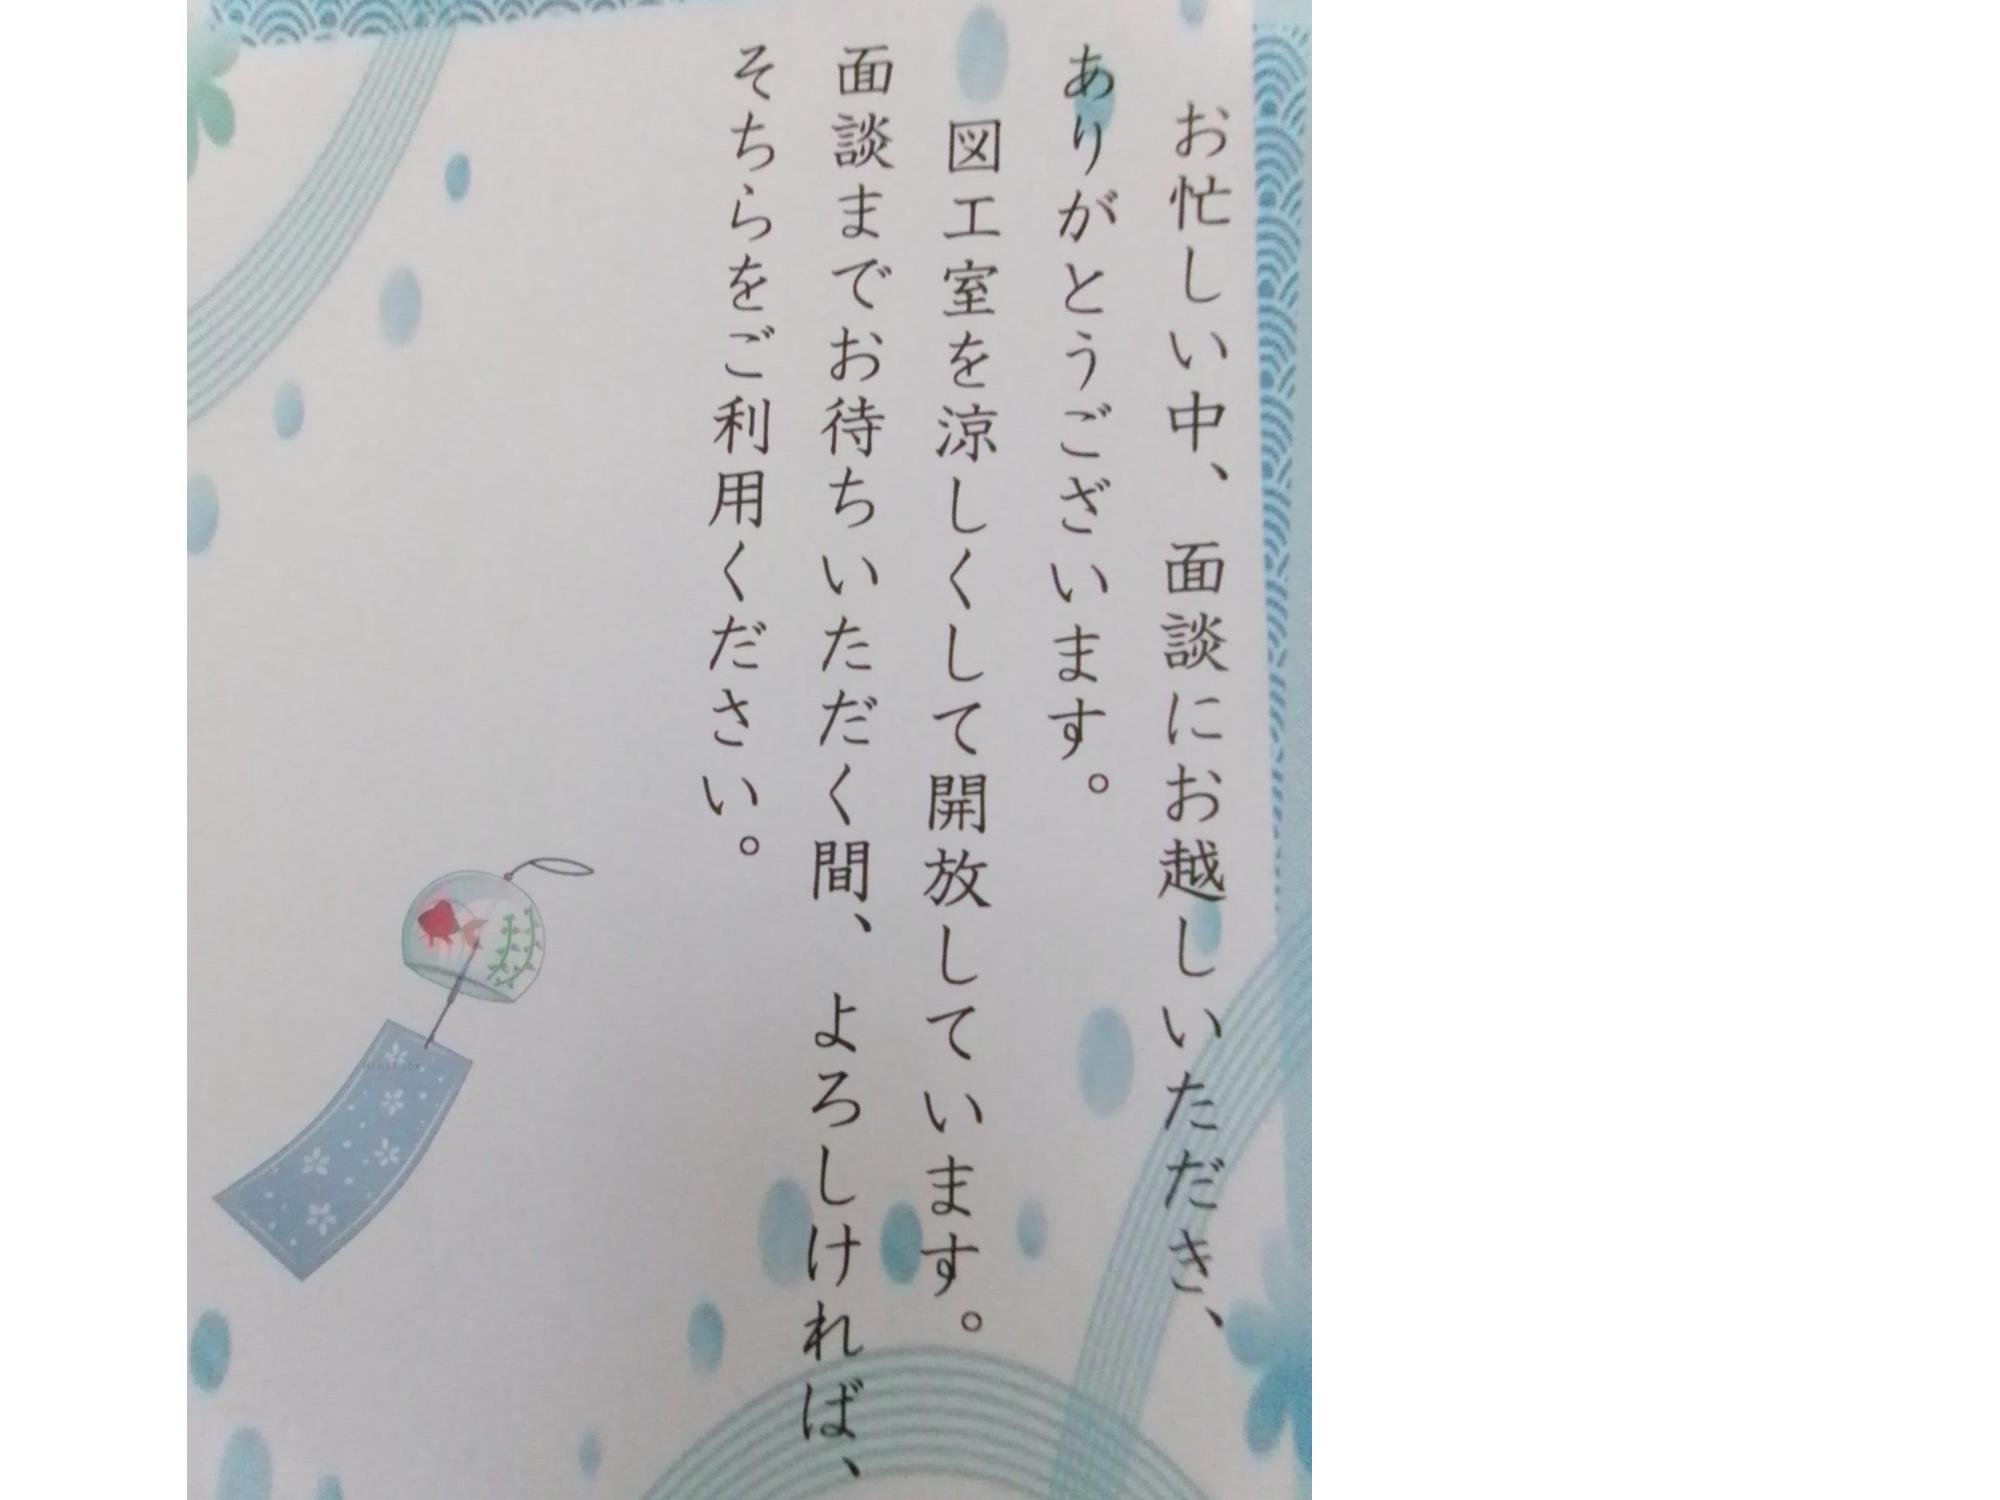 お忙しい中、面談にお越しいただき、
ありがとうございます。
図工室を涼しくして開放しています。
面談までお待ちいただく間、よろしければ、
そちらをご利用ください。